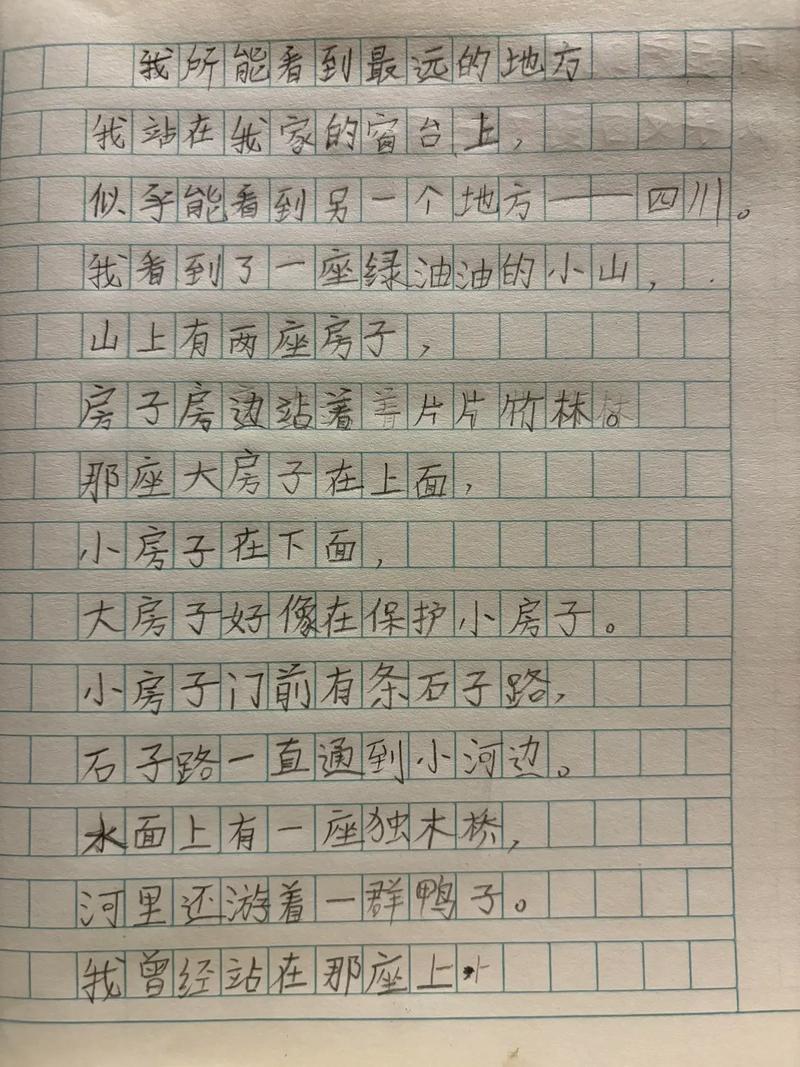 我所能看到最远的地方
我站在我家的窗台上，
似乎能看到另一个地方——四川。
我看到了一座绿油油的小山，
山上有两座房子，
房子房边站着片片竹林。
那座大房子在上面，
小房子在下面，
大房子好像在保护小房子。
小房子门前有条石子路，
石子路一直通到小河边。
水面上有一座独木桥，
河里还游着一群鸭子。
我曾经站在那座上